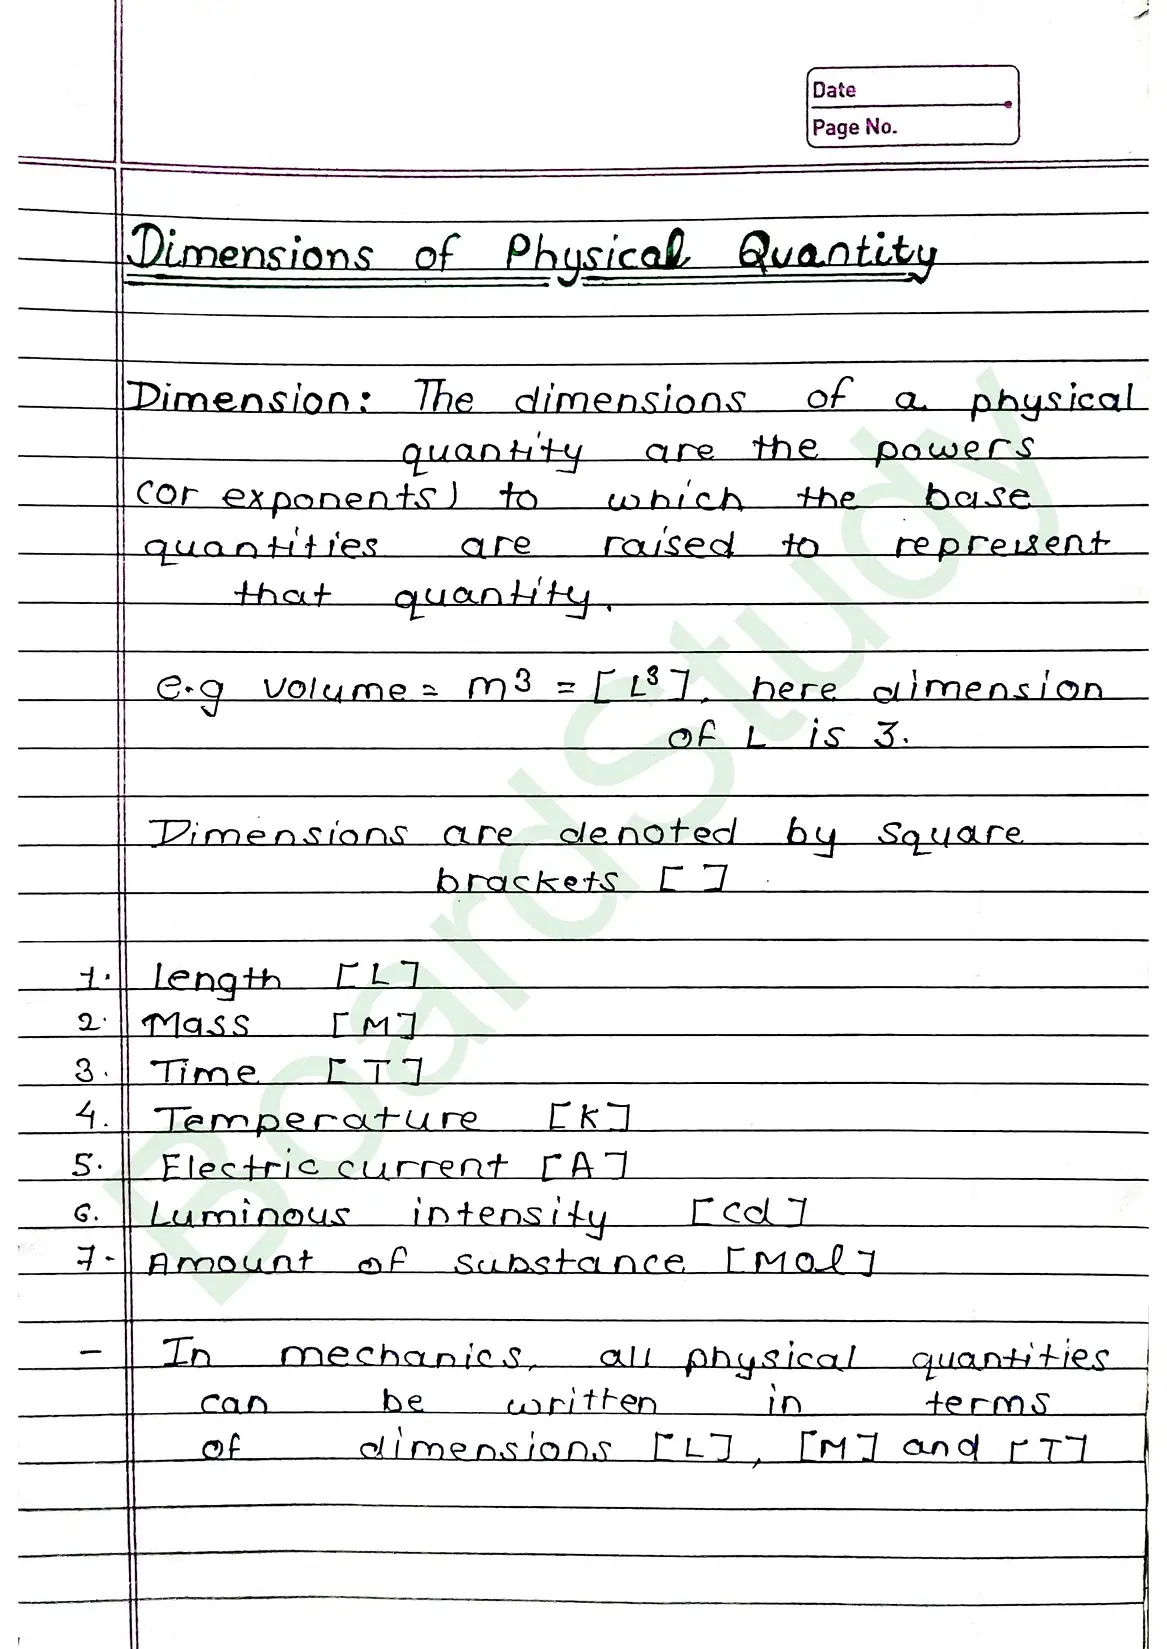 Date
Page No.
Dimensions of Physical Quantity
Dimension: The dimensions of a physical
quantity are the powers
(or exponents) to which the base
quantities are raised to represent
that quantity.
e.g volume = m³ = [L³], here dimension
of L is 3.
Dimensions are denoted by square
brackets [ ]
1. length [L]
2. Mass [M]
3. Time [T]
4. Temperature [K]
5. Electric current [A]
6. Luminous intensity [cd]
7. Amount of substance [Mol]
- In mechanics, all physical quantities
can be written in terms
of dimensions [L], [M] and [T]
BoardStudy